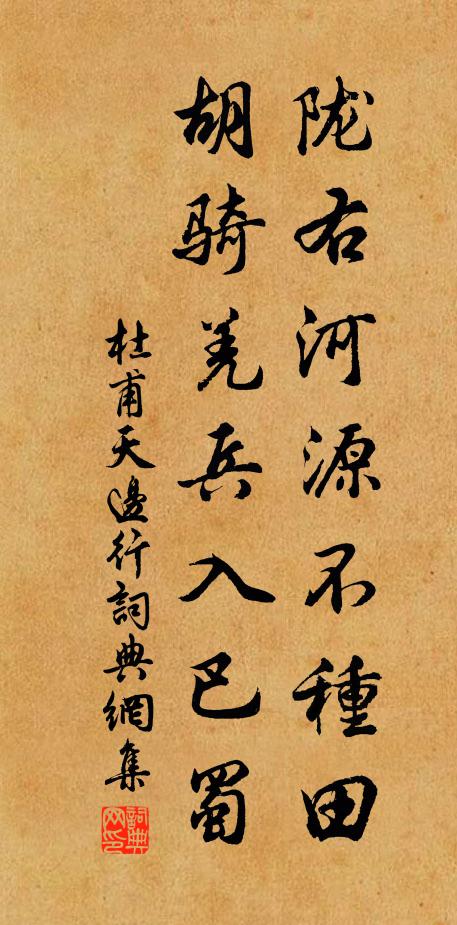 陇右河源不種田
胡骑羌兵入巴蜀
杜甫天邊行詞典網集
詞典网印